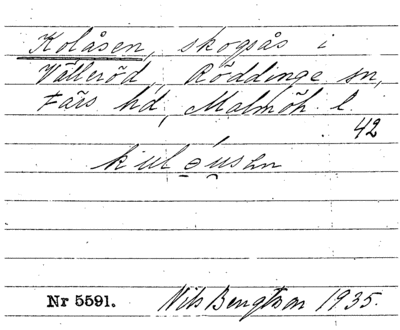 Kolåsen, skogsås i
Välleröd, Röddinge sn,
Färs hd, Malmöh. l.
42
kulǝ́u̯sən
Nr 5591. Nils Bengtson 1935.